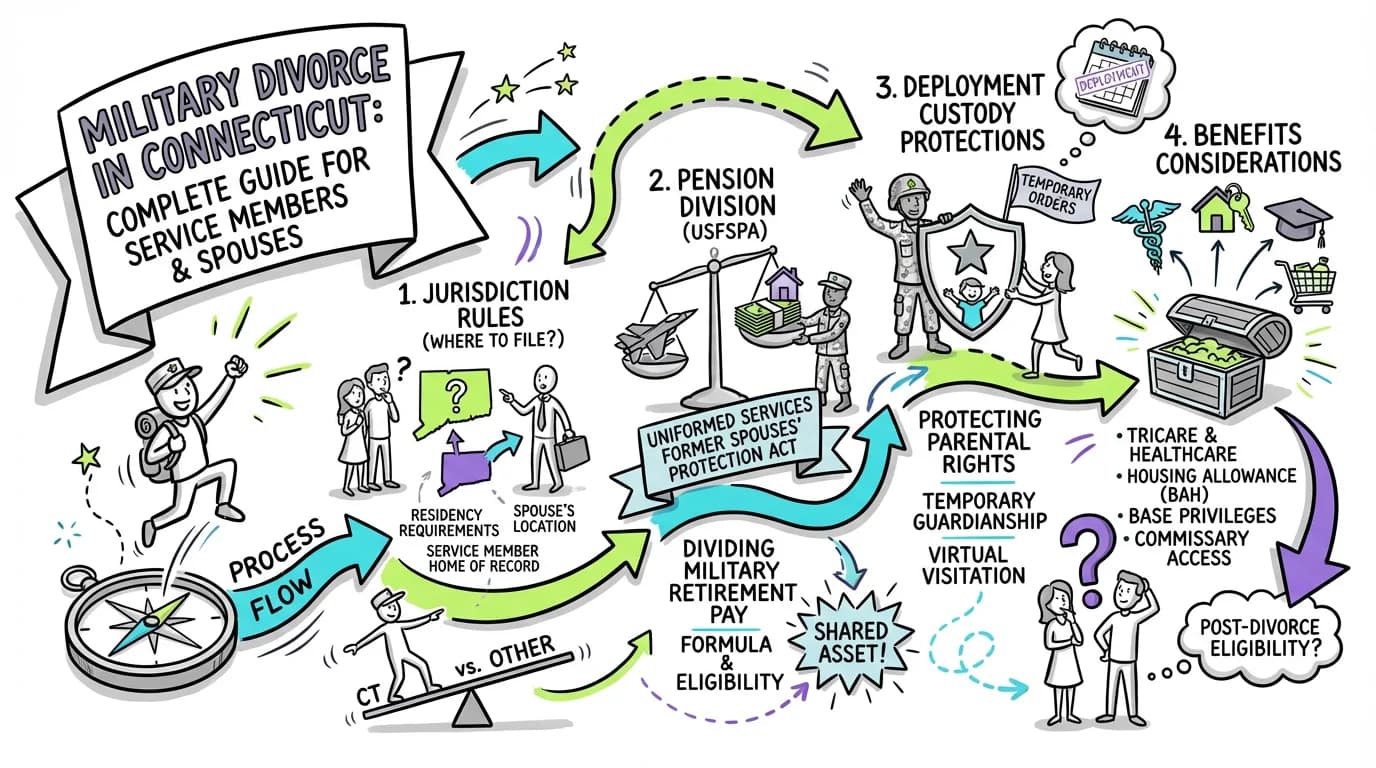 MILITARY DIVORCE
IN CONNECTICUT:
COMPLETE GUIDE FOR
SERVICE MEMBERS
& SPOUSES
PROCESS
FLOW
1. JURISDICTION
RULES
(WHERE TO FILE?)
?
?
RESIDENCY
REQUIREMENTS
SPOUSE'S
LOCATION
SERVICE MEMBER
HOME OF RECORD
CT
vs. OTHER
2. PENSION
DIVISION
(USFSPA)
UNIFORMED SERVICES
FORMER SPOUSES'
PROTECTION ACT
DIVIDING
MILITARY
RETIREMENT
PAY
FORMULA
&
ELIGIBILITY
SHARED
ASSET!
3. DEPLOYMENT
CUSTODY
PROTECTIONS
TEMPORARY
ORDERS
PROTECTING
PARENTAL
RIGHTS
TEMPORARY
GUARDIANSHIP
VIRTUAL
VISITATION
4. BENEFITS
CONSIDERATIONS
• TRICARE &
HEALTHCARE
• HOUSING ALLOWANCE
(BAH)
• BASE PRIVILEGES
• COMMISSARY
ACCESS
?
POST-DIVORCE
ELIGIBILITY?